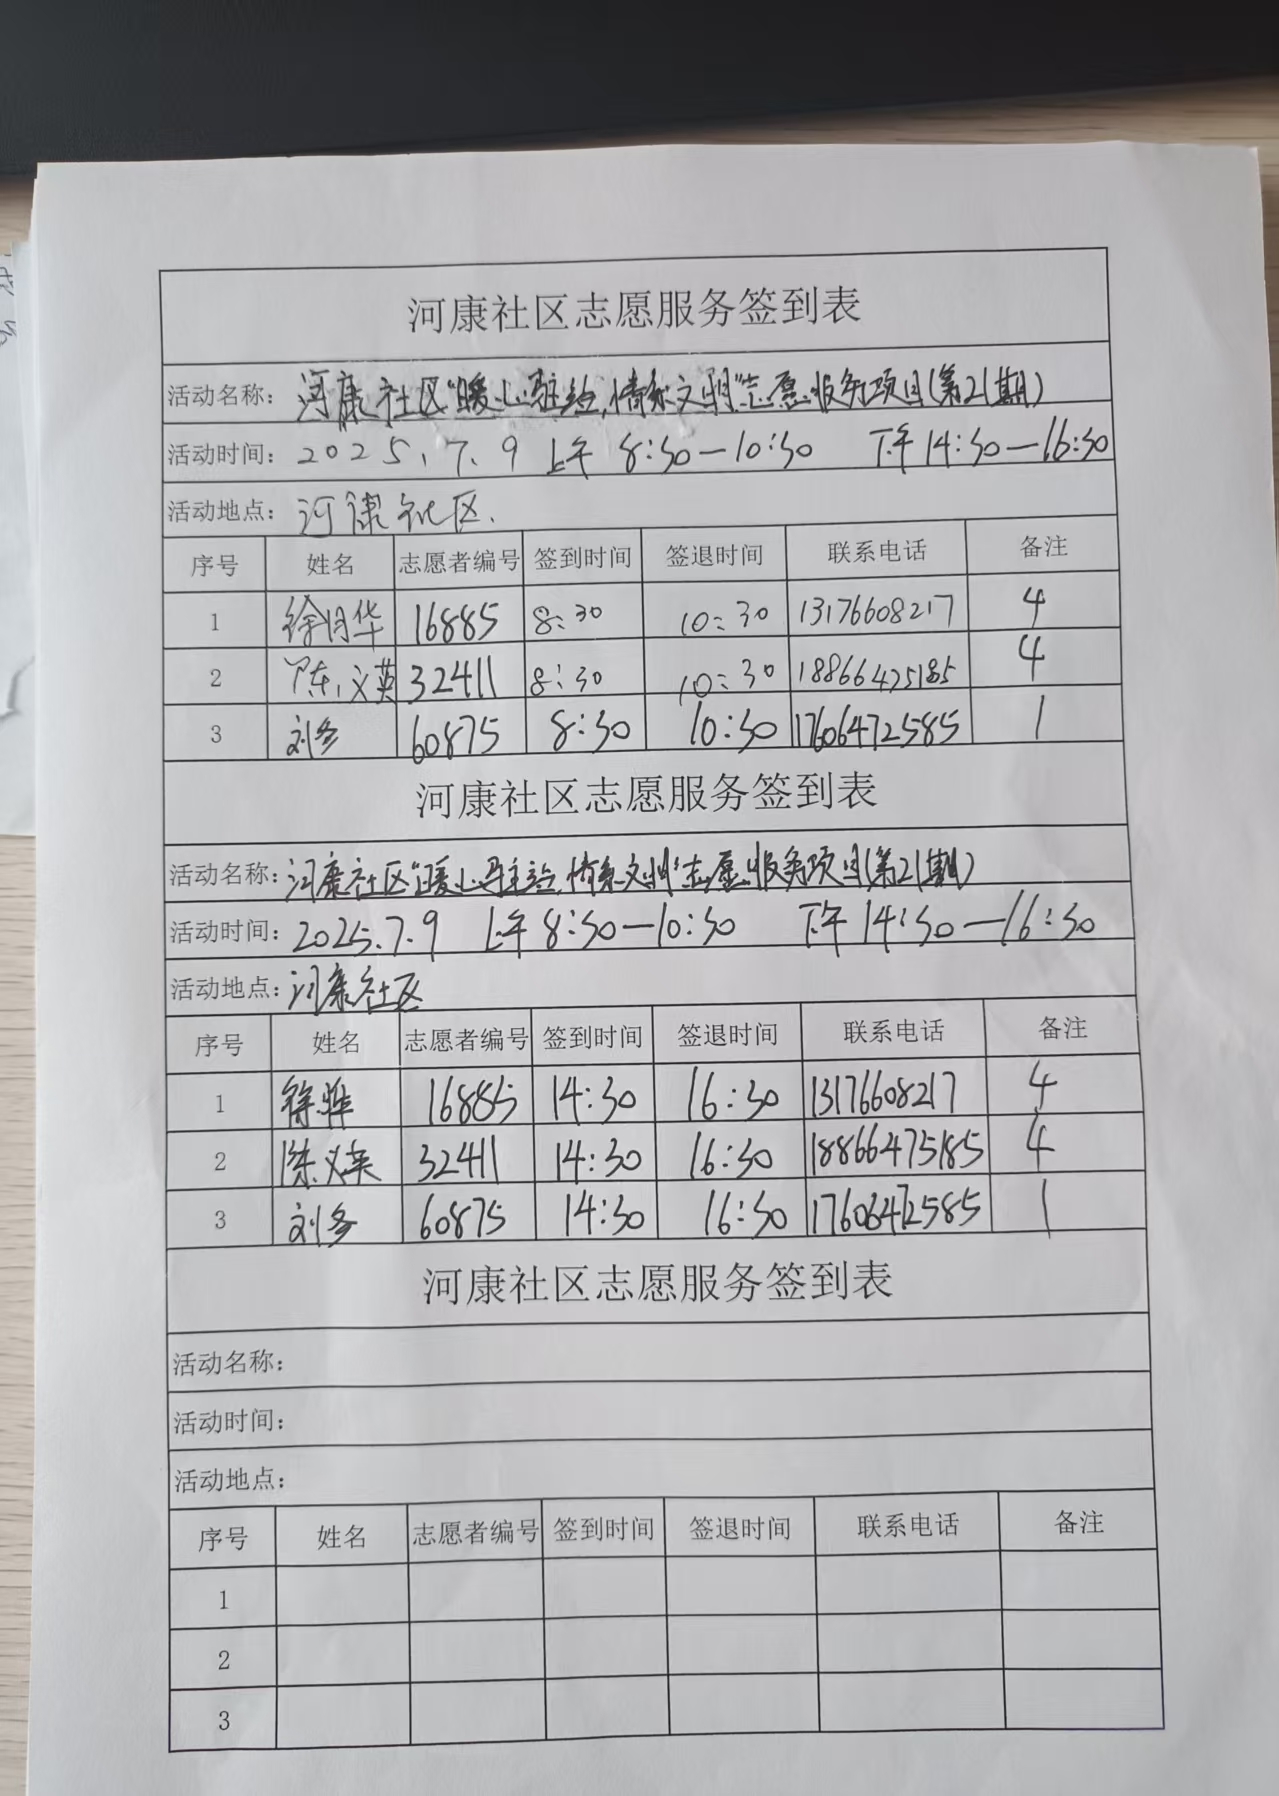 河康社区志愿服务签到表
活动名称：河康社区"暖心驿站,情系文明"志愿服务项目(第21期)
活动时间：2025.7.9 上午 8:30—10:30 下午 14:30—16:30
活动地点：河康社区.
序号 姓名 志愿者编号 签到时间 签退时间 联系电话 备注
1 徐月华 16885 8:30 10:30 13176608217 4
2 陈文英 32411 8:30 10:30 18866475185 4
3 刘冬 60875 8:30 10:30 17606472585 1
河康社区志愿服务签到表
活动名称：河康社区"暖心驿站,情系文明"志愿服务项目(第21期)
活动时间：2025.7.9 上午 8:30—10:30 下午 14:30—16:30
活动地点：河康社区
序号 姓名 志愿者编号 签到时间 签退时间 联系电话 备注
1 16885 14:30 16:30 13176608217 4
2 陈文英 32411 14:30 16:30 18866475185 4
3 刘冬 60875 14:30 16:30 17606472585 1
河康社区志愿服务签到表
活动名称：
活动时间：
活动地点：
序号 姓名 志愿者编号 签到时间 签退时间 联系电话 备注
1
2
3